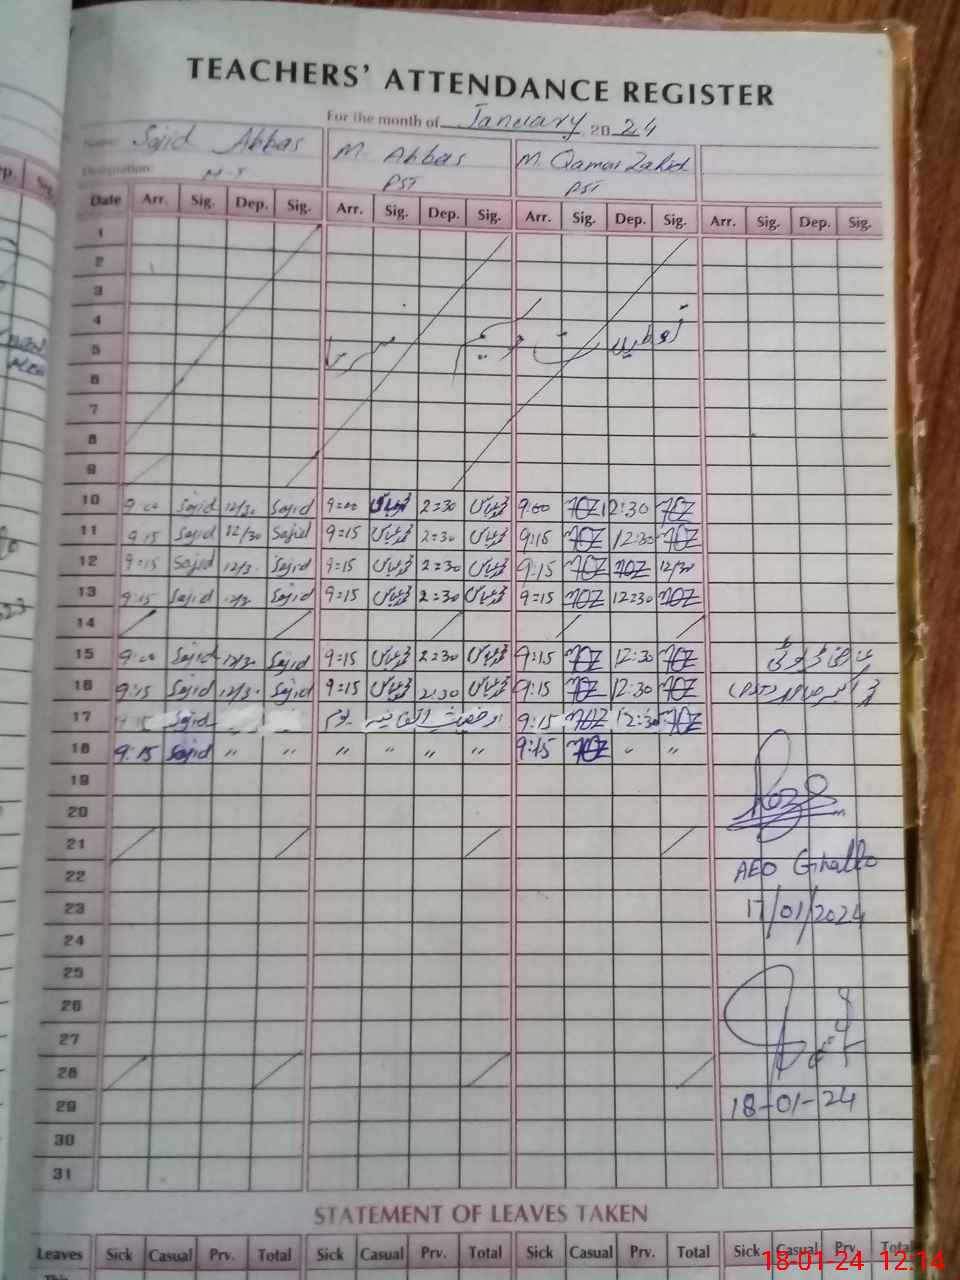 TEACHERS' ATTENDANCE REGISTER
For the month of January 2024
Name Sajid Abbas M. Abbas M. Qamar Zahid
Designation PST PST
Date Arr. Sig. Dep. Sig. Arr. Sig. Dep. Sig. Arr. Sig. Dep. Sig. Arr. Sig. Dep. Sig.
1
2
3
4
تعطیلات موسم سرما
5
6
7
8
9
10 9:00 Sajid 12/30 Sajid 9=00 عباس 2=30 عباس 9:00 MQZ 12:30 MQZ
11 9:15 Sajid 12/30 Sajid 9=15 عباس 2=30 عباس 9:15 MQZ 12:30 MQZ
12 9=15 Sajid 12/3. Sajid 9=15 عباس 2=30 عباس 9:15 MQZ MQZ 12/30
13 9:15 Sajid 12/3. Sajid 9=15 عباس 2=30 عباس 9=15 MQZ 12=30 MQZ
14
15 9:00 Sajid 12/30 Sajid 9=15 عباس 2=30 عباس 9:15 MQZ 12:30 MQZ
16 9:15 Sajid 12/3. Sajid 9=15 عباس 2:30 عباس 9:15 MQZ 12:30 MQZ (PST)
17 9:15 Sajid رخصت اتفاقیہ یوم 9:15 MQZ 12:30 MQZ
18 9:15 Sajid " " " " " " 9:15 MQZ " "
19
20
21
22 AEO
23 17/01/2024
24
25
26
27
28
29 18-01-24
30
31
STATEMENT OF LEAVES TAKEN
Leaves Sick Casual Prv. Total Sick Casual Prv. Total Sick Casual Prv. Total Sick Casual Prv. Total
This
18-01-24 12:14